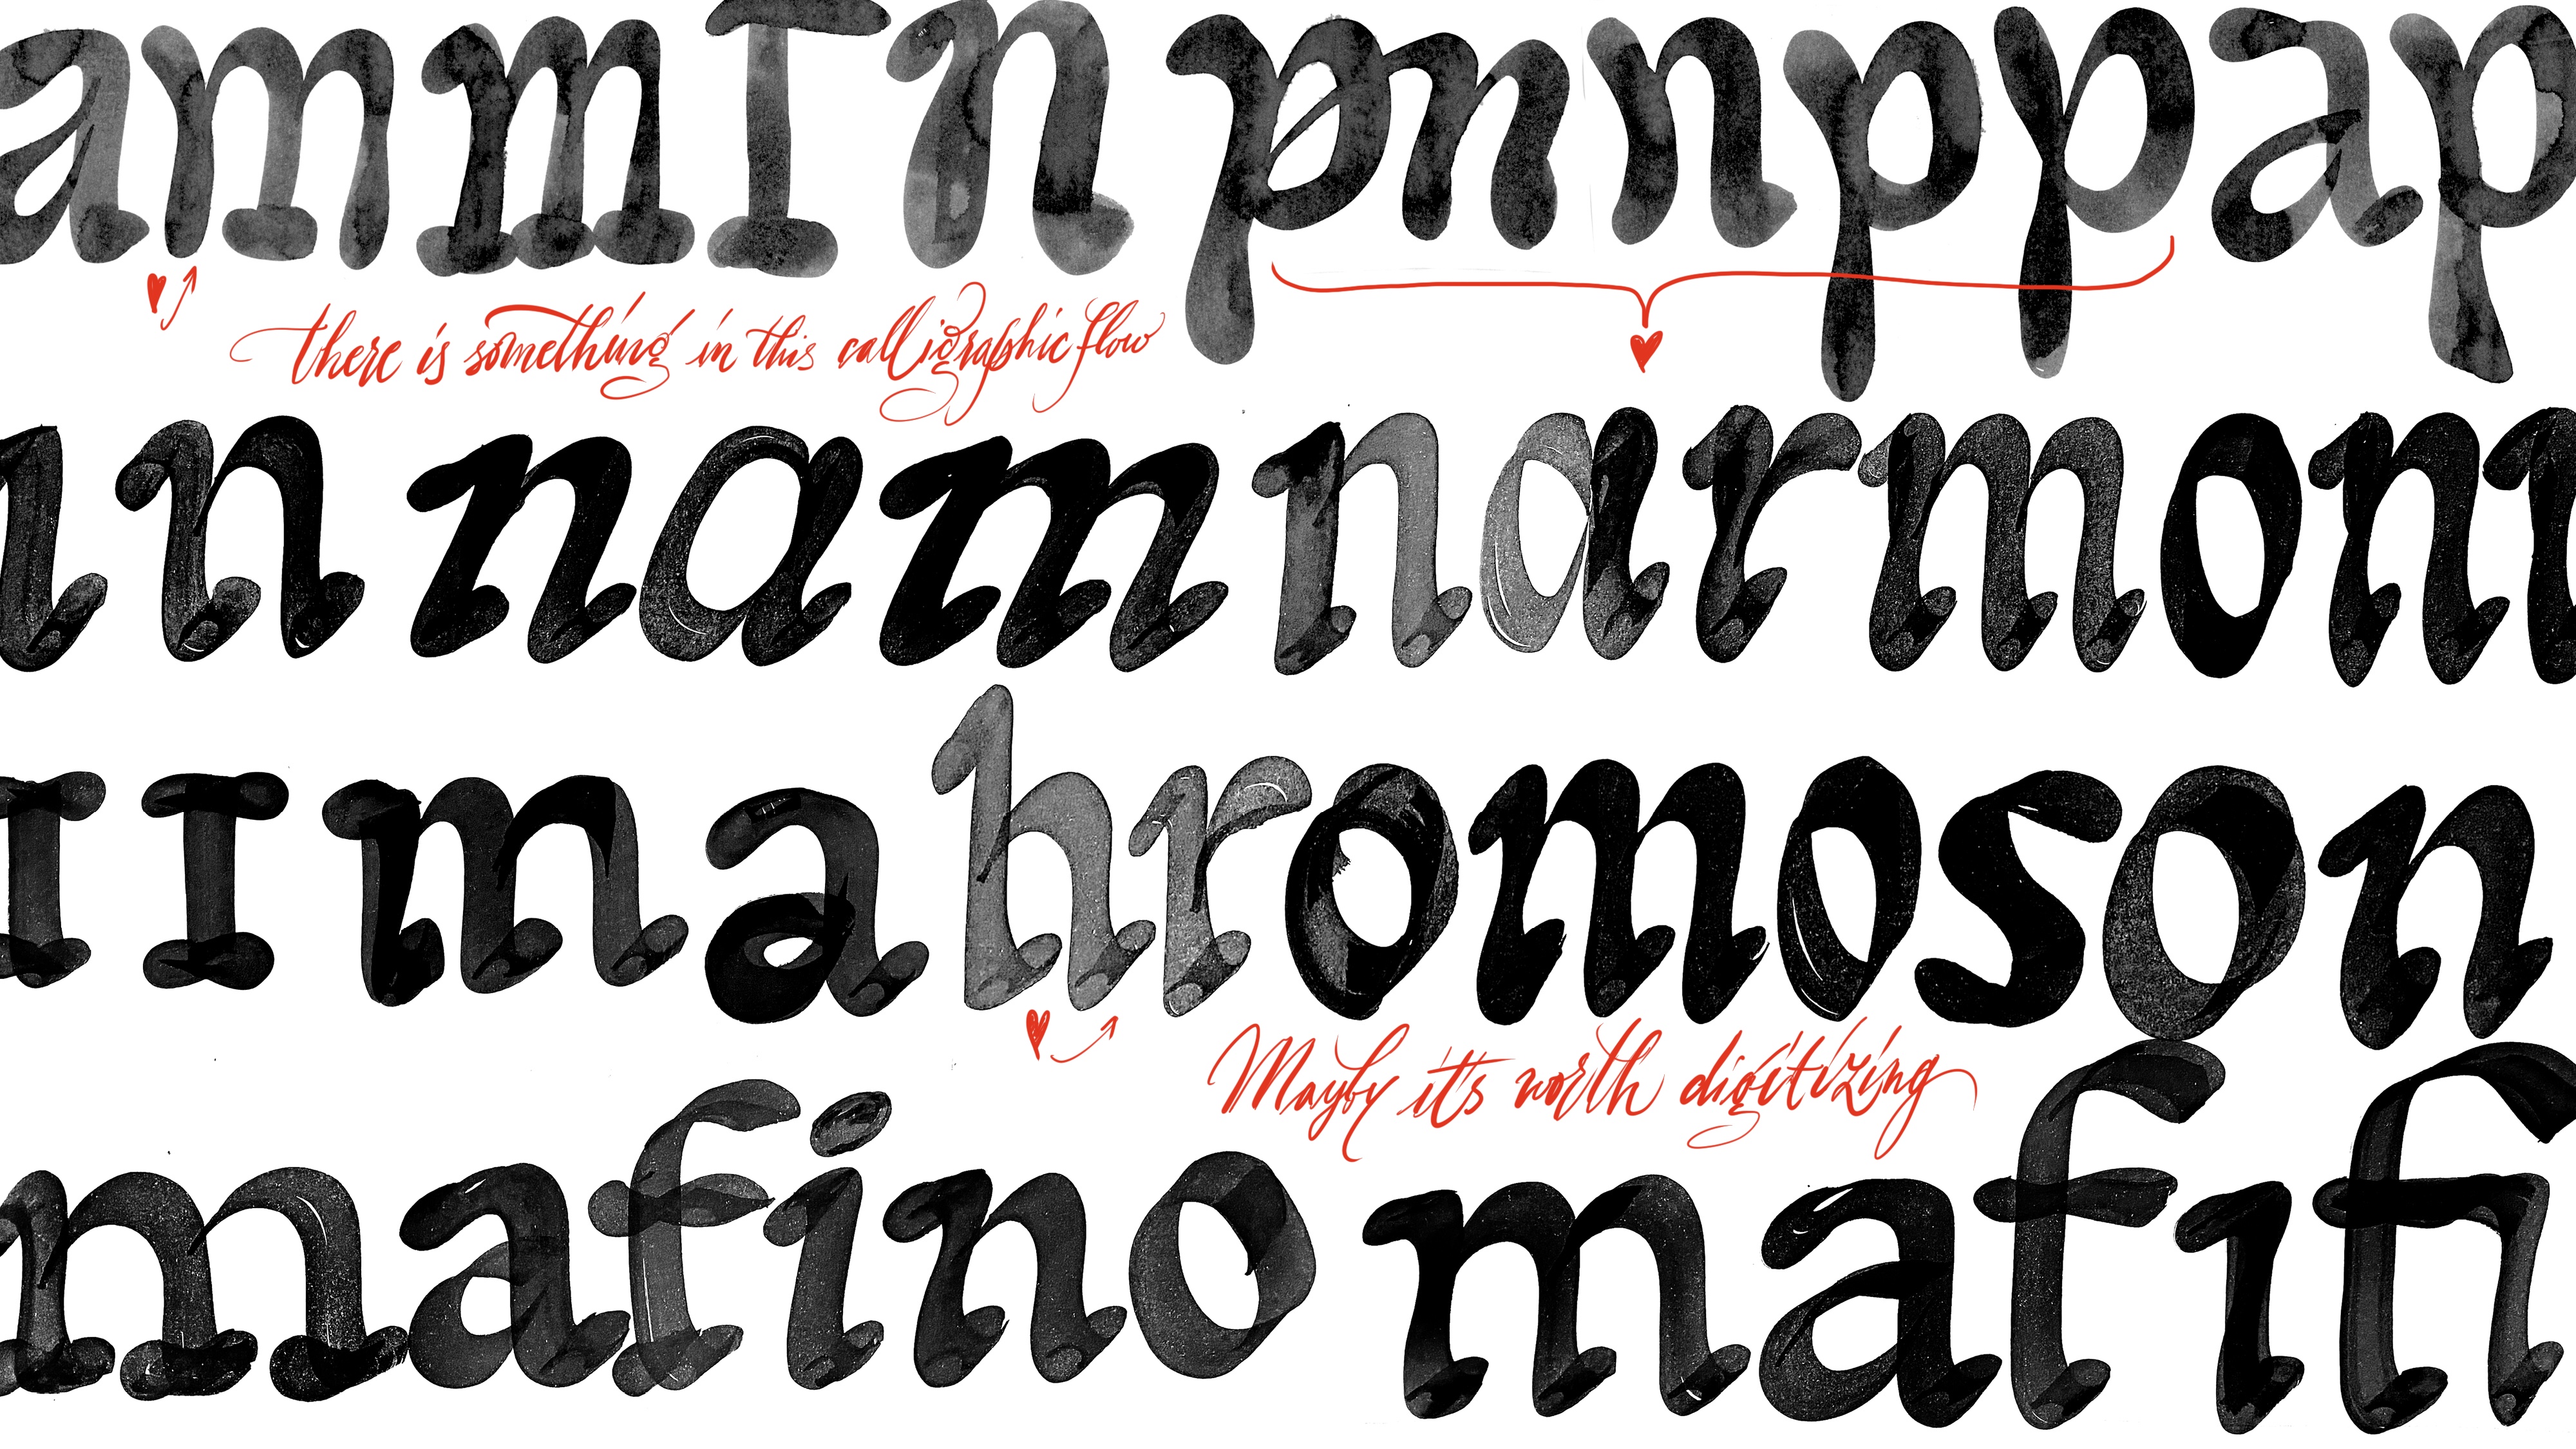 ammIn pnnppap
there is something in this calligraphic flow
ın nam narmonı
IImahromoson
Mayby it's worth digitizing
mafino mafıfı